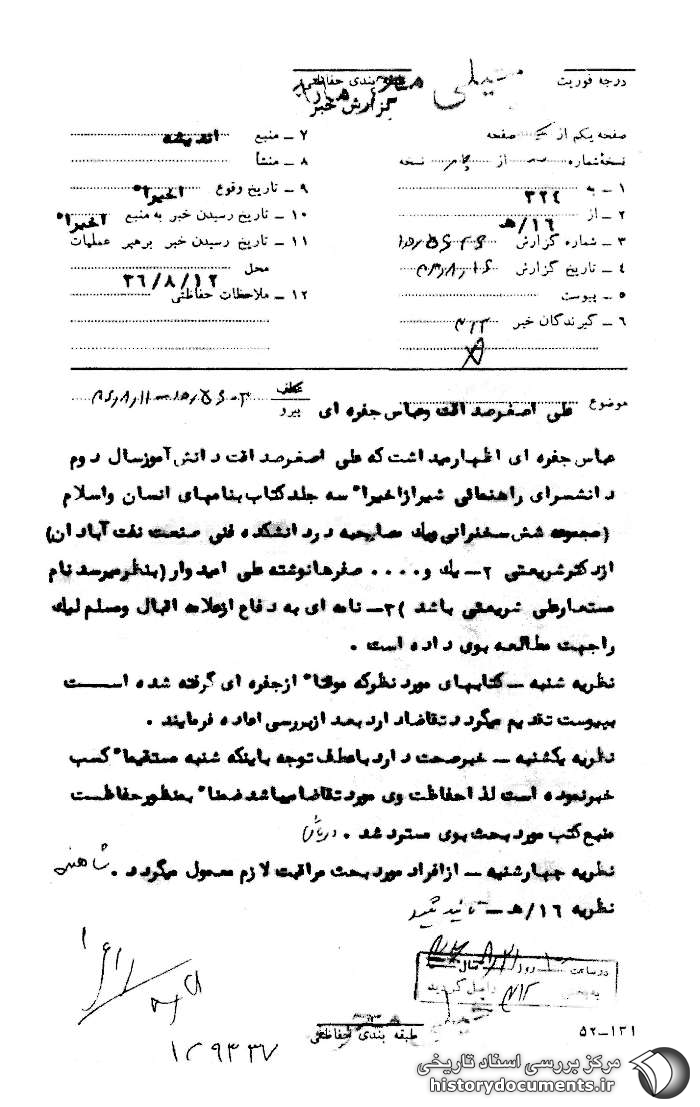 خیلی محرمانه
درجه فوریت
طبقه بندی حفاظتی
گزارش خبر
صفحه یکم از یک صفحه
نسخهٔ شماره از نسخه
۱ – به ۳۲۴
۲ – از ۱۶/هـ
۳ – شماره گزارش
۴ – تاریخ گزارش
۵ – پیوست
۶ – گیرندگان خبر
۷ – منبع اندیشه
۸ – منشأ
۹ – تاریخ وقوع اخیرا"
۱۰ – تاریخ رسیدن خبر به منبع اخیرا"
۱۱ – تاریخ رسیدن خبر برهبر عملیات
محل ۳۶/۸/۱۲
۱۲ – ملاحظات حفاظتی
موضوع علی اصغر صداقت و عباس جفره ای
عطف
پیرو
عباس جفره ای اظهار میداشت که علی اصغر صداقت دانش آموز سال دوم
دانشسرای راهنمائی شیراز اخیرا" سه جلد کتاب بنامهای انسان واسلام
(مجموعه شش سخنرانی ویک مصاحبه در دانشکده فنی صنعت نفت آبادان)
از دکتر شریعتی ۲– یک و.... صفرها نوشته علی امیدوار (بنظر میرسد نام
مستعار علی شریعتی باشد )۳– نامه ای به دفاع از علامه اقبال و مسلم لیگ
را جهت مطالعه بوی داده است .
نظریه شنبه – کتابهای مورد نظر که موقتا" از جفره ای گرفته شده اســـت
بپیوست تقدیم میگردد تقاضا دارد بعد از بررسی اعاده فرمایند .
نظریه یکشنبه – خبر صحت دارد با عطف توجه باینکه شنبه مستقیما" کسب
خبر نموده است لذا حفاظت وی مورد تقاضا میباشد ضمنا" بمنظور حفاظـت
منبع کتب مورد بحث بوی مسترد شد .
نظریه چهارشنبه – از افراد مورد بحث مراقبت لازم معمول میگردد .
نظریه ۱۶/هـ – تائید میشود
در ساعت روز سال
به بخش واصل گردید
طبقه بندی حفاظتی
۵۲–۱۳۱
مرکز بررسی اسناد تاریخی
historydocuments.ir